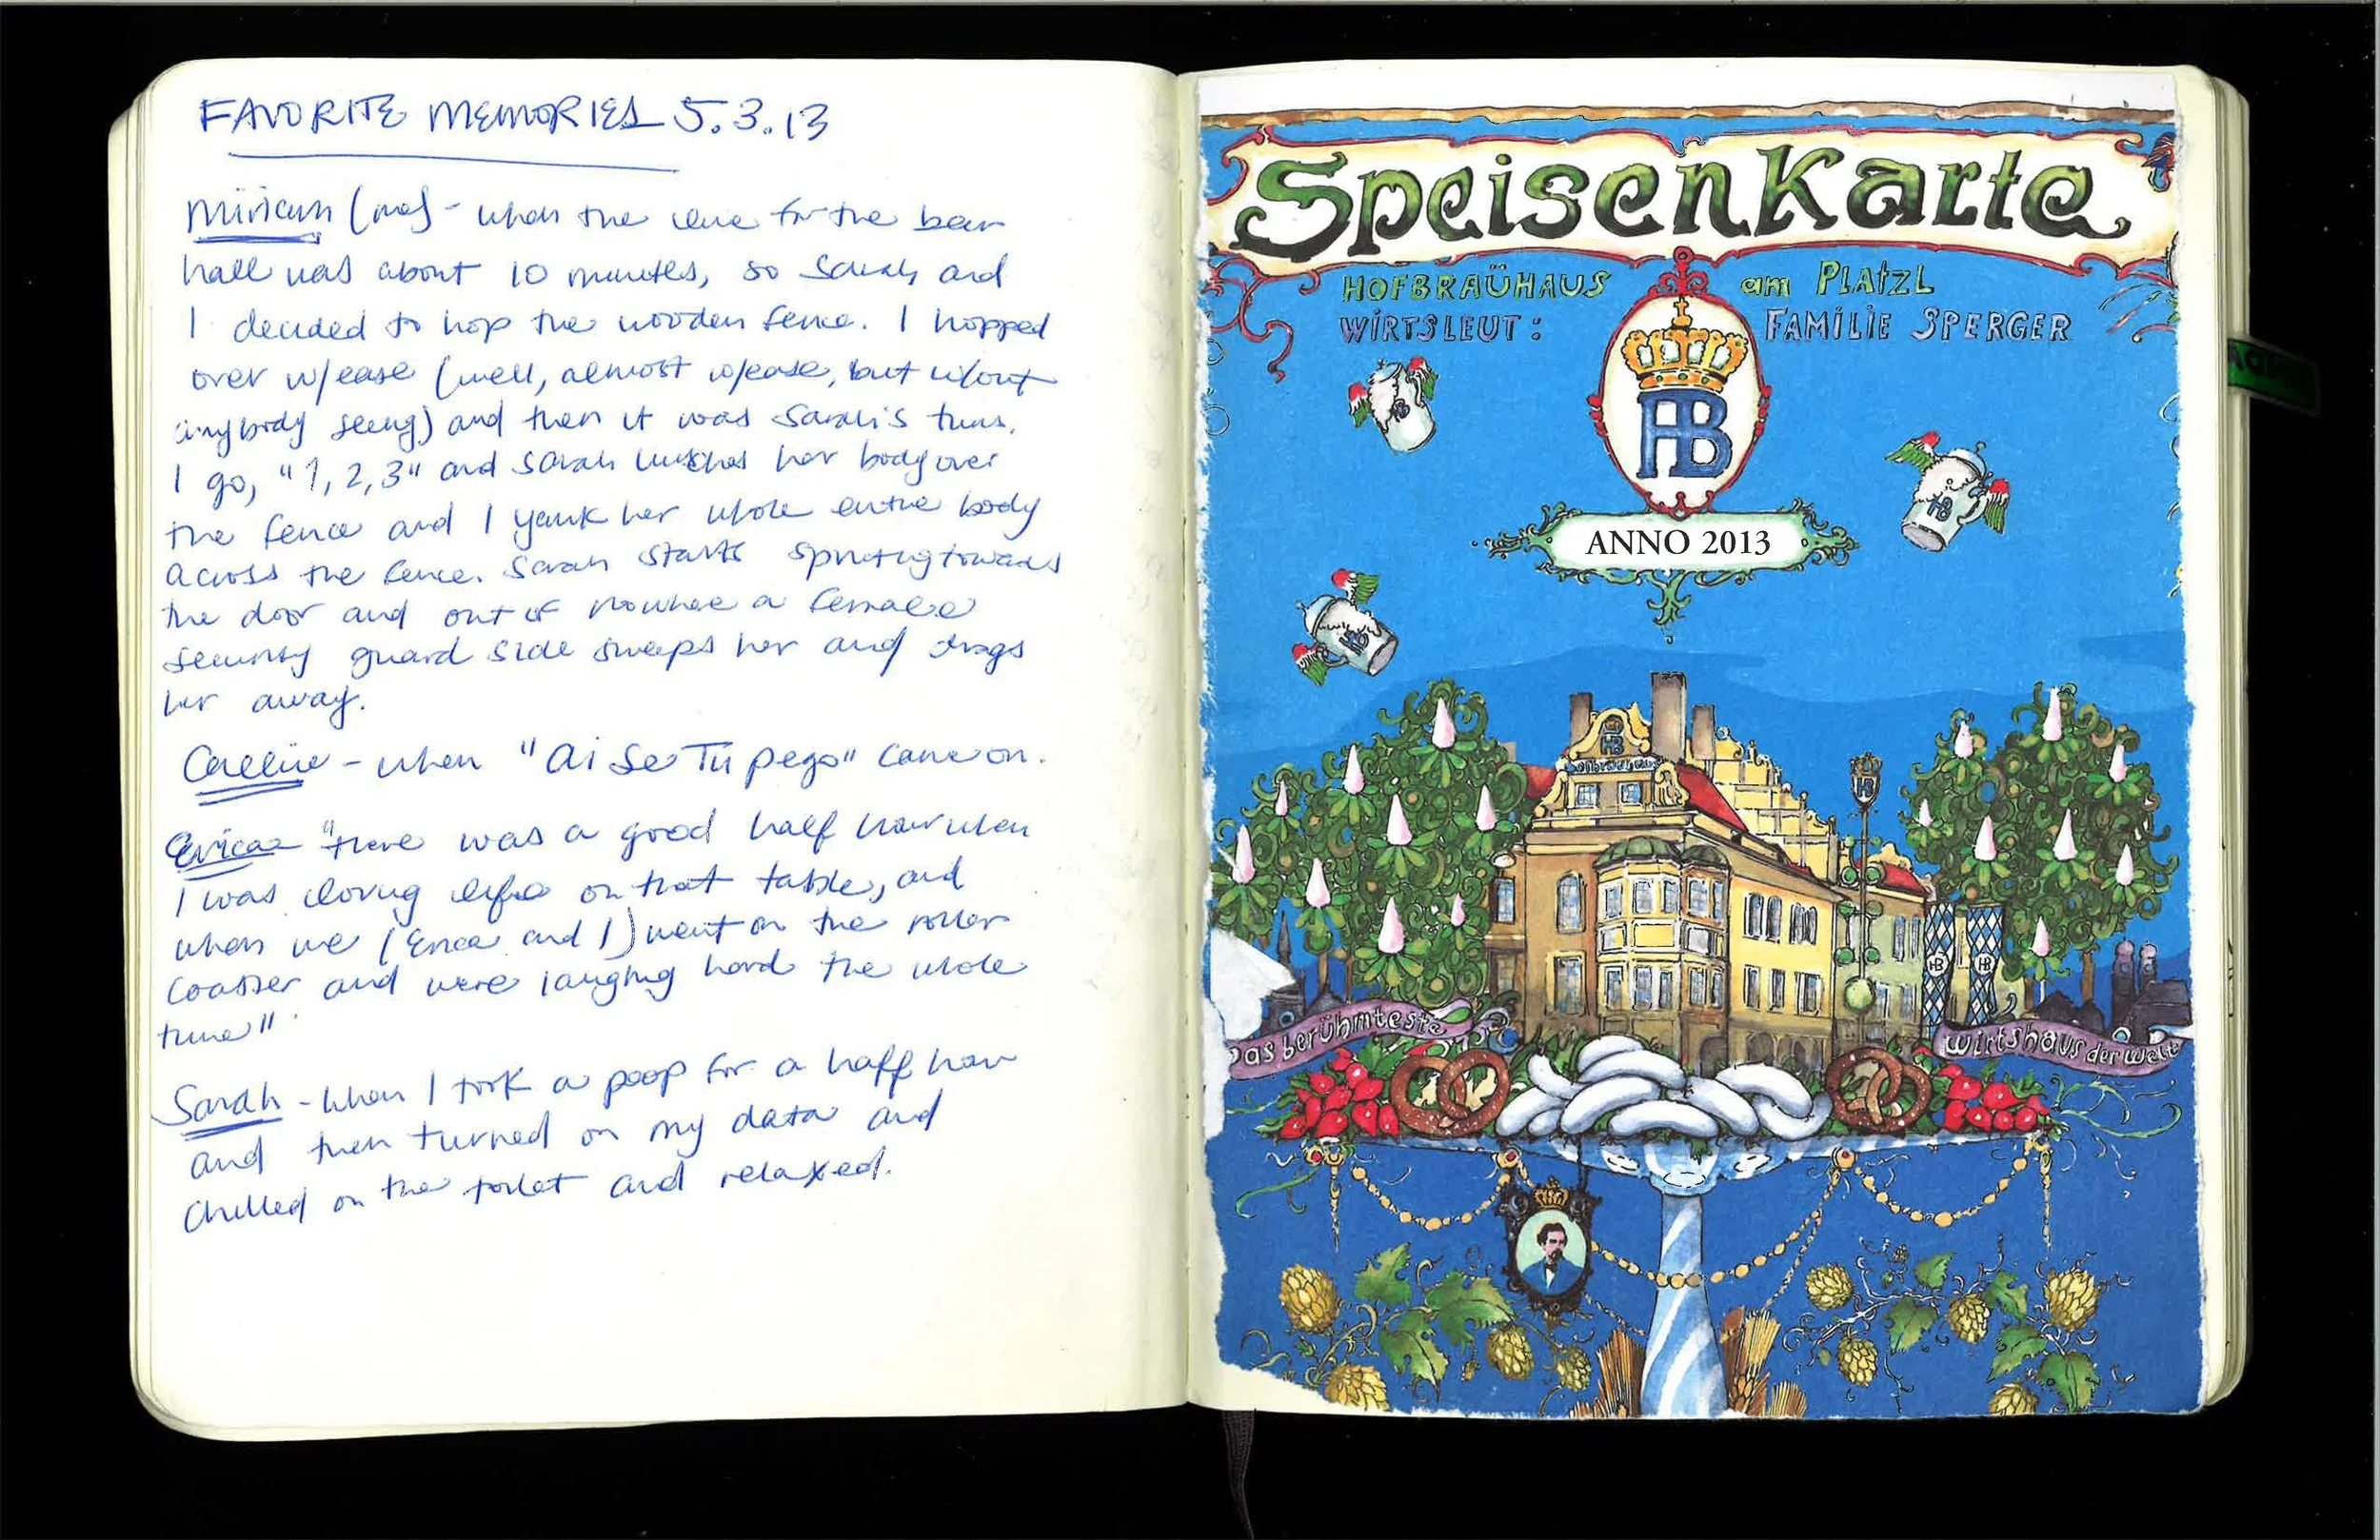 FAVORITE MEMORIES 5.3.13
Miriam (me) - when the line for the beer
hall was about 10 minutes, so Sarah and
I decided to hop the wooden fence. I hopped
over w/ease (well, almost w/ease, but w/out
anybody seeing) and then it was Sarah's turn.
I go, "1, 2, 3" and Sarah her body over
the fence and I yank her whole entire body
across the fence. Sarah starts sprinting towards
the door and out of nowhere a female
security guard side sweeps her and drags
her away.
Callie - when "Ai Se Tu pego" came on.
Erica - "there was a good half hour when
I was loving life on that table, and
when we (Erica and I) went on the roller
coaster and were laughing hard the whole
time"
Sarah - when I took a poop for a half hour
and then turned on my data and
chilled on the toilet and relaxed.
Speisenkarte
HOFBRAÜHAUS am PLATZL
WIRTSLEUT: FAMILIE SPERGER
HB
HB
HB
HB
ANNO 2013
HB
HB
HB HB
Das berühmteste
wirtshaus der welt